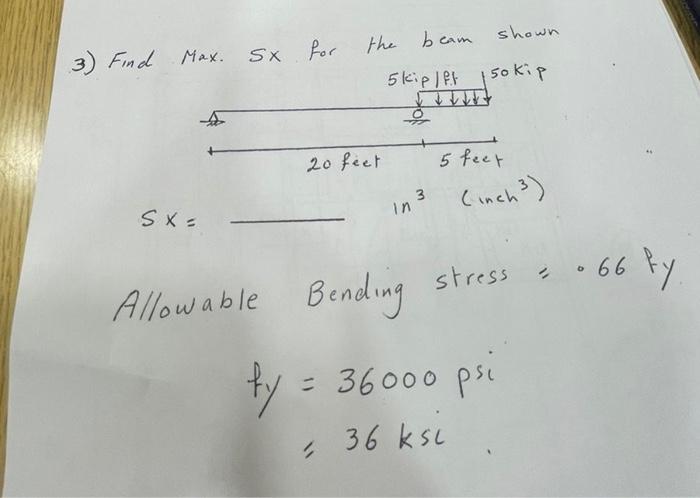 3) Find Max. Sx for the beam shown
5 kip/ft 50 kip
20 feet 5 feet
Sx = in³ (inch³)
Allowable Bending stress = .66 fy
fy = 36000 psi
= 36 ksi.